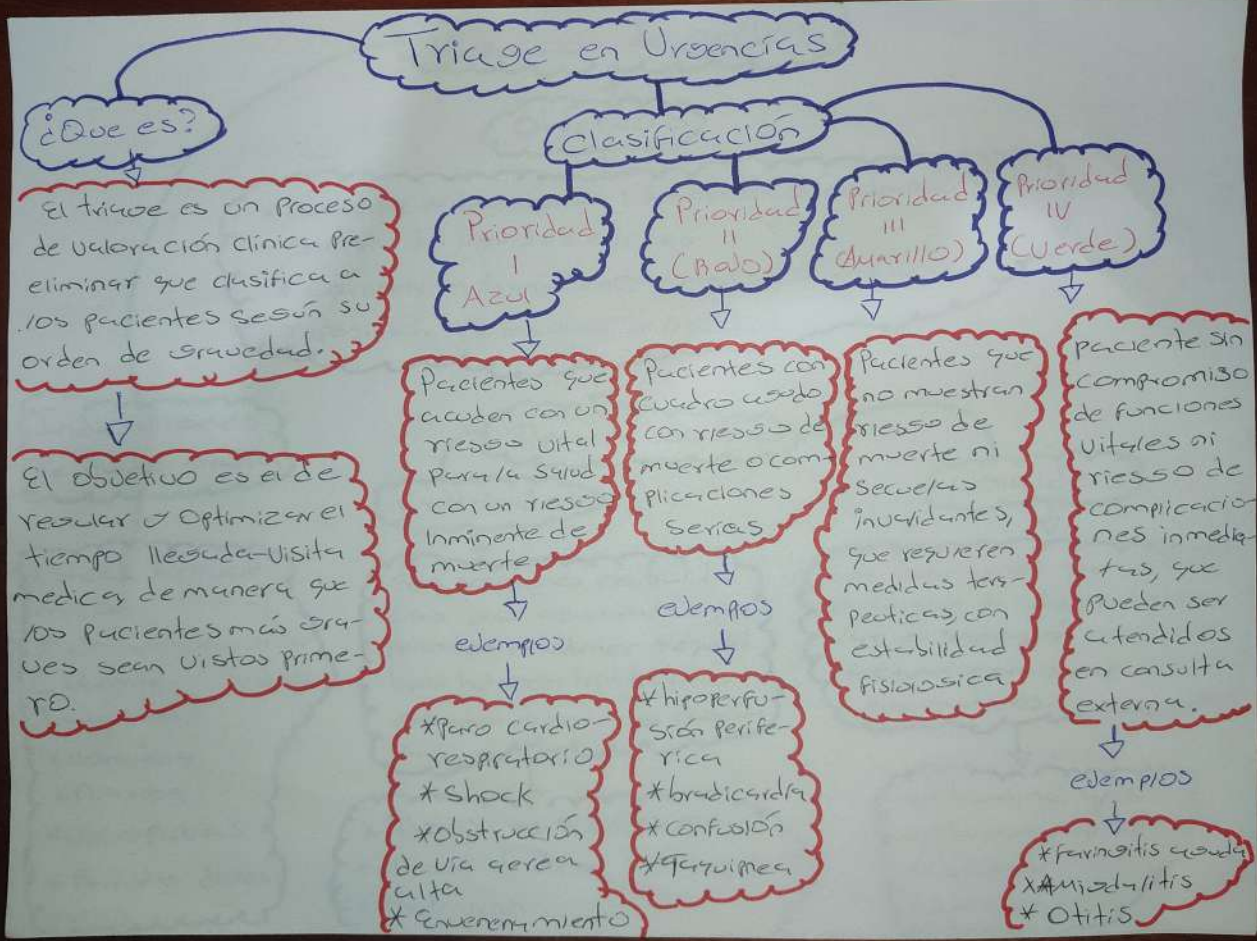 Triage en Urgencias
¿Que es?
El triage es un Proceso
de valoración clínica Pre-
eliminar que clasifica a
los pacientes según su
orden de gravedad.
El objetivo es el de
regular y Optimizar el
tiempo llegada-Visita
medica, de manera que
los pacientes más gra-
ves sean vistos prime-
ro.
Clasificación
Prioridad
I
Azul
Pacientes que
acuden con un
riesgo vital
para la salud
con un riesgo
Inminente de
muerte
ejemplos
*Paro cardio-
respiratorio
*Shock
*Obstrucción
de vía aerea
alta
* Envenenamiento
Prioridad
II
(Rojo)
Pacientes con
cuadro agudo
con riesgo de
muerte o com-
plicaciones
serias
ejemplos
*hipoperfu-
sión perife-
rica
*bradicardía
*confusión
*Taquipnea
Prioridad
III
(Amarillo)
Pacientes que
no muestran
riesgo de
muerte ni
secuelas
invalidantes,
que requieren
medidas tera-
peuticas, con
estabilidad
fisiologica
Prioridad
IV
(Verde)
paciente sin
compromiso
de funciones
vitales ni
riesgo de
complicacio
nes inmedia-
tas, que
pueden ser
atendidos
en consulta
externa.
ejemplos
*faringitis aguda
*Amigdalitis
* Otitis